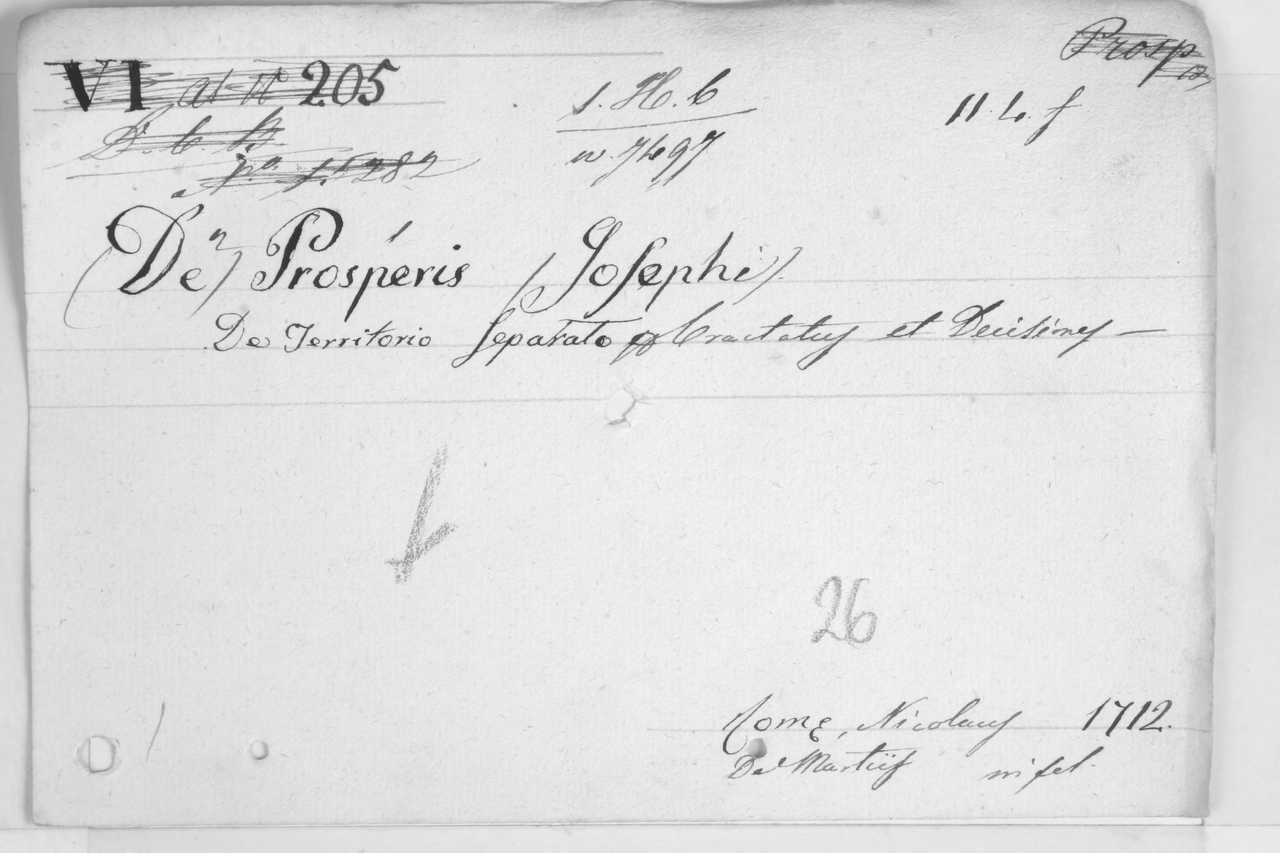 VI 205
Prosp
1. H. 6
11. 4. f
n. 7497
N.º 1.282
(De) Prosperis (Josephi).
De Territorio Separato Tractatus et Decisiones —
26
Romę, Nicolaus 1712.
De Martiis in fol.